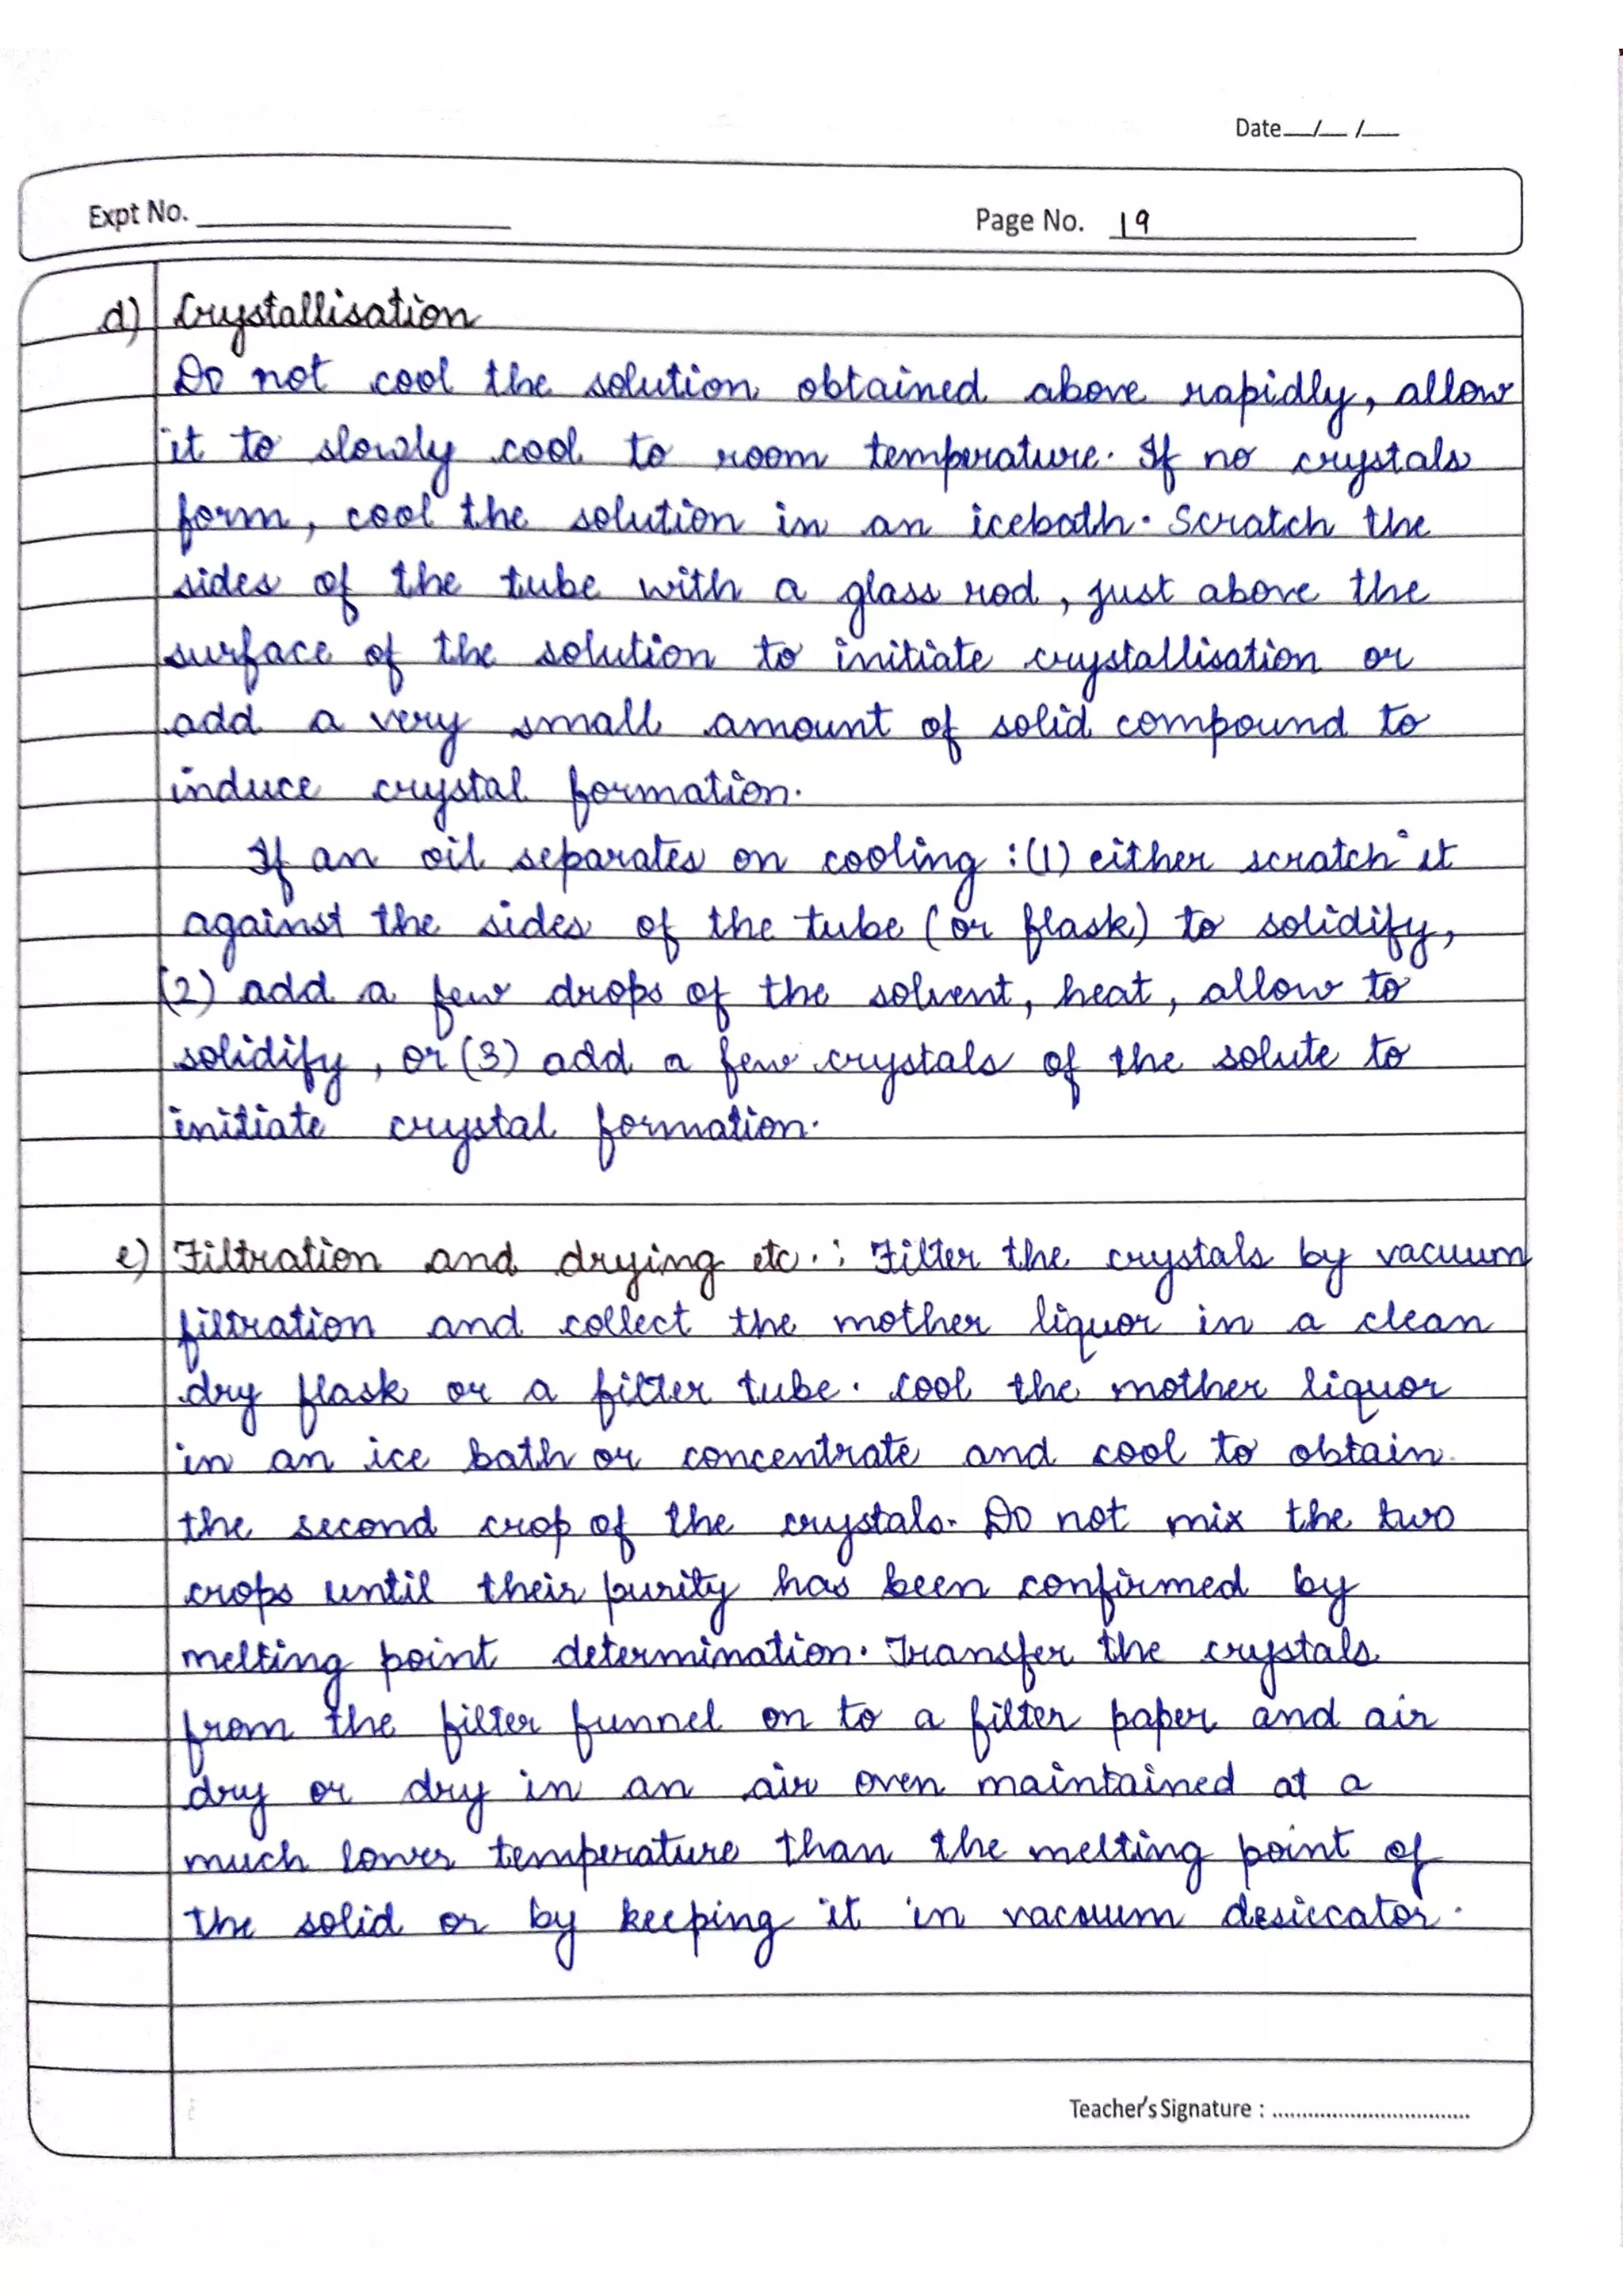 Date__/__ /__
Expt No. ____________ Page No. 19
d) Crystallisation
Do not cool the solution obtained above rapidly, allow
it to slowly cool to room temperature. If no crystals
form, cool the solution in an icebath. Scratch the
sides of the tube with a glass rod, just above the
surface of the solution to initiate crystallisation or
add a very small amount of solid compound to
induce crystal formation.
If an oil separates on cooling : (1) either scratch it
against the sides of the tube (or flask) to solidify,
(2) add a few drops of the solvent, heat, allow to
solidify, or (3) add a few crystals of the solute to
initiate crystal formation.
e) Filtration and drying etc. : Filter the crystals by vacuum
filtration and collect the mother liquor in a clean
dry flask or a filter tube. Cool the mother liquor
in an ice bath or concentrate and cool to obtain
the second crop of the crystals. Do not mix the two
crops until their purity has been confirmed by
melting point determination. Transfer the crystals
from the filter funnel on to a filter paper and air
dry or dry in an air oven maintained at a
much lower temperature than the melting point of
the solid or by keeping it in vacuum desiccator.
Teacher's Signature : .................................